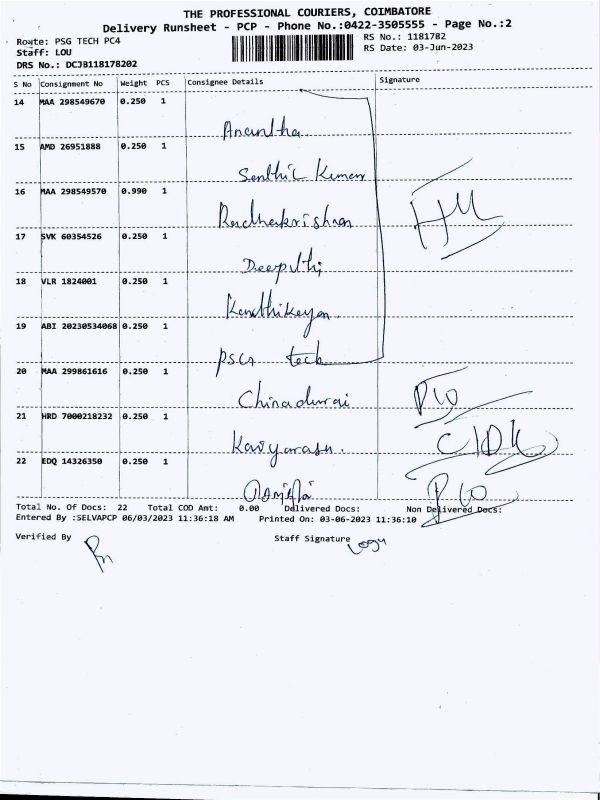 THE PROFESSIONAL COURIERS, COIMBATORE
Delivery Runsheet - PCP - Phone No.:0422-3505555 - Page No.:2
Route: PSG TECH PC4
RS No.: 1181782
Staff: LOU
RS Date: 03-Jun-2023
DRS No.: DCJB118178202
S No Consignment No Weight PCS Consignee Details Signature
14 MAA 298549670 0.250 1
Anantha
15 AMD 26951888 0.250 1
Senthil Kumar
16 MAA 298549570 0.990 1
Radhakrishnan
17 SVK 60354526 0.250 1
Deepthi
18 VLR 1824001 0.250 1
Karthikeyan
19 ABI 20230534068 0.250 1
PSG tech
20 MAA 299861616 0.250 1
Chinadurai
21 HRD 7000218232 0.250 1
Kaviyarasu.
22 EDQ 14326350 0.250 1
Total No. Of Docs: 22 Total COD Amt: 0.00 Delivered Docs: Non Delivered Docs:
Entered By :SELVAPCP 06/03/2023 11:36:18 AM Printed On: 03-06-2023 11:36:10
Verified By Staff Signature